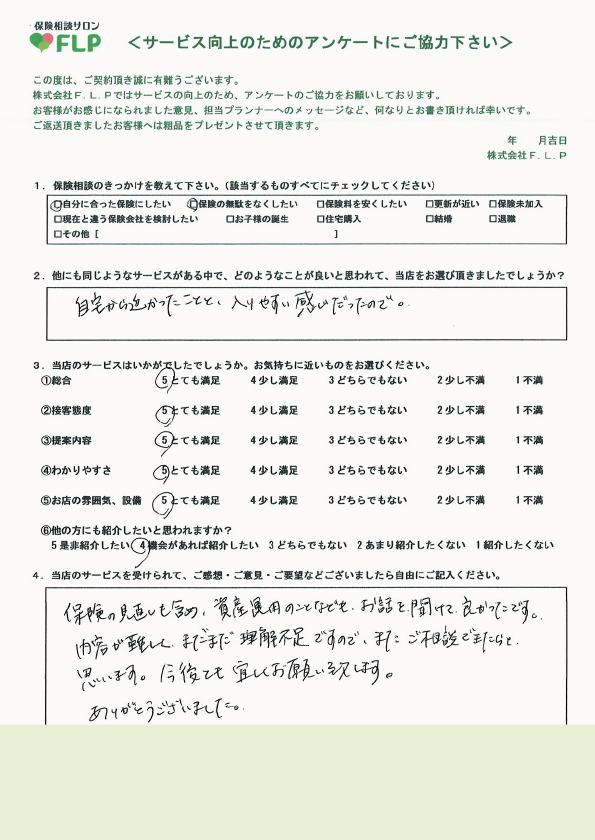 保険相談サロン
FLP
＜サービス向上のためのアンケートにご協力下さい＞
この度は、ご契約頂き誠に有難うございます。
株式会社Ｆ.Ｌ.Ｐではサービスの向上のため、アンケートのご協力をお願いしております。
お客様がお感じになられました意見、担当プランナーへのメッセージなど、何なりとお書き頂ければ幸いです。
ご返送頂きましたお客様へは粗品をプレゼントさせて頂きます。
年　月吉日
株式会社Ｆ.Ｌ.Ｐ
１．保険相談のきっかけを教えて下さい。（該当するものすべてにチェックしてください）
□自分に合った保険にしたい　□保険の無駄をなくしたい　□保険料を安くしたい　□更新が近い　□保険未加入
□現在と違う保険会社を検討したい　□お子様の誕生　□住宅購入　□結婚　□退職
□その他［　］
２．他にも同じようなサービスがある中で、どのようなことが良いと思われて、当店をお選び頂きましたでしょうか？
自宅から近かったことと、入りやすい感じだったので。
３．当店のサービスはいかがでしたでしょうか。お気持ちに近いものをお選びください。
①総合　５とても満足　４少し満足　３どちらでもない　２少し不満　１不満
②接客態度　５とても満足　４少し満足　３どちらでもない　２少し不満　１不満
③提案内容　５とても満足　４少し満足　３どちらでもない　２少し不満　１不満
④わかりやすさ　５とても満足　４少し満足　３どちらでもない　２少し不満　１不満
⑤お店の雰囲気、設備　５とても満足　４少し満足　３どちらでもない　２少し不満　１不満
⑥他の方にも紹介したいと思われますか？
５是非紹介したい　４機会があれば紹介したい　３どちらでもない　２あまり紹介したくない　１紹介したくない
４．当店のサービスを受けられて、ご感想・ご意見・ご要望などございましたら自由にご記入ください。
保険の見直しも含め、資産運用のことなども、お話を聞けて良かったです。
内容が難しく、まだまだ理解不足ですので、またご相談できたらと
思います。今後とも宜しくお願い致します。
ありがとうございました。